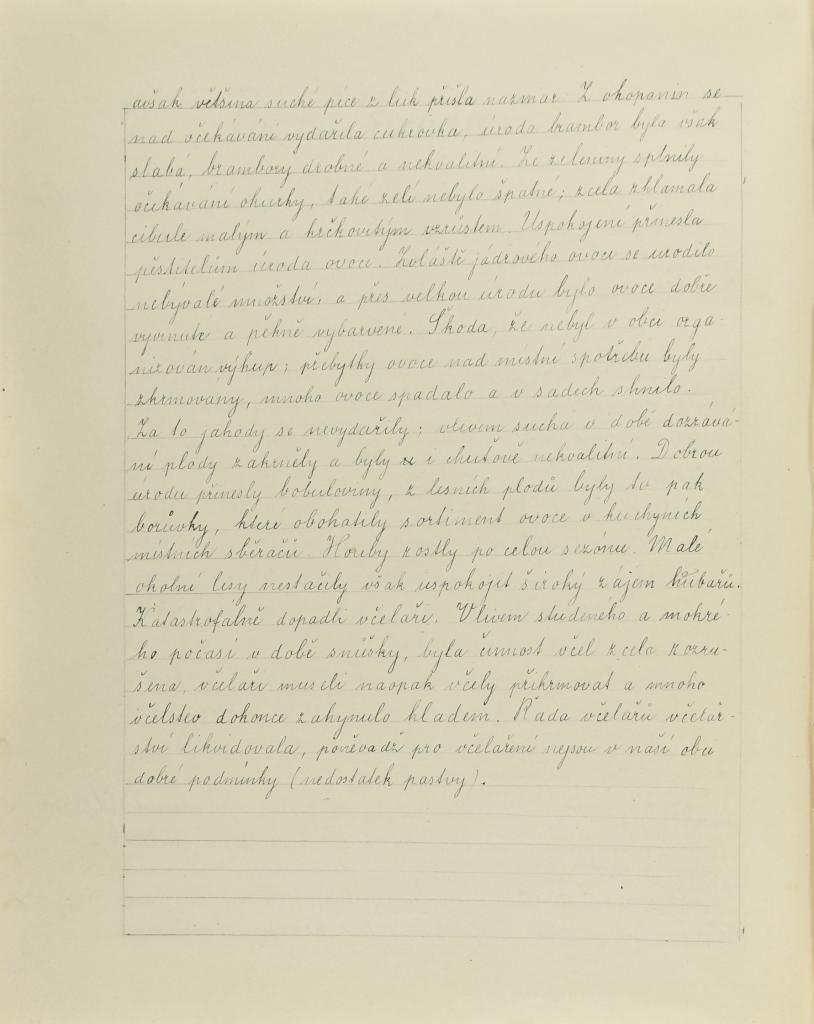 avšak většina suché píce z luk přišla nazmar. Z okopanin se
nad očekávání vydařila cukrovka, úroda brambor byla však
slabá, brambory drobné a nekvalitní. Ze zeleniny splnily
očekávání okurky, také zelí nebylo špatné; zcela zklamala
cibule malým a krčkovitým vzrůstem. Uspokojení přinesla
pěstitelům úroda ovoce. Zvláště jádrového ovoce se urodilo
nebývalé množství, a přes velkou úrodu bylo ovoce dobře
vyvinuté a pěkně vybarvené. Škoda, že nebyl v obci orga-
nizován výkup; přebytky ovoce nad místní spotřebu byly
zkrmovány, mnoho ovoce spadalo a v sadech shnilo.
Za to jahody se nevydařily; vlivem sucha v době dozrává-
ní plody zakrněly a byly i chuťově nekvalitní. Dobrou
úrodu přinesly bobuloviny, z lesních plodů byly to pak
borůvky, které obohatily sortiment ovoce v kuchyních
místních sběračů. Houby rostly po celou sezónu. Malé
okolní lesy nestačily však uspokojit široký zájem hubařů.
Katastrofálně dopadli včelaři. Vlivem studeného a mokré-
ho počasí v době snůšky, byla činnost včel zcela rozru-
šena, včelaři museli naopak včely přikrmovat a mnoho
včelstev dokonce zahynulo hladem. Řada včelařů včelař-
ství likvidovala, poněvadž pro včelaření nejsou v naší obci
dobré podmínky (nedostatek pastvy).